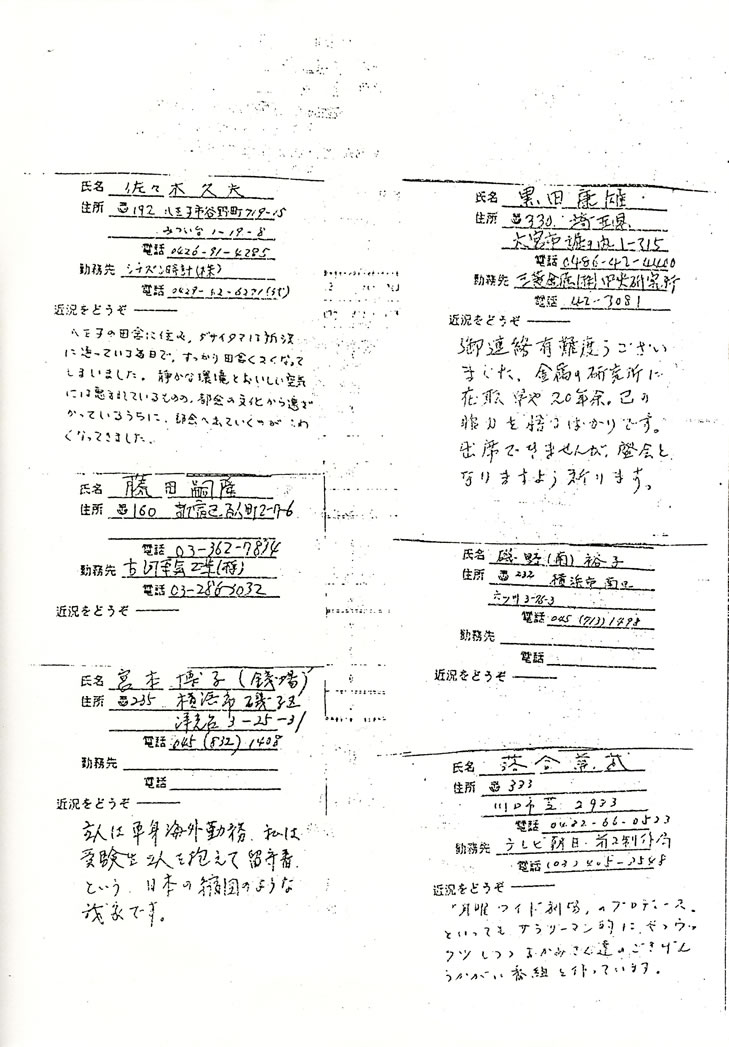 氏名 佐々木久夫
住所 〒192 八王子市谷野町719-15
みつい台 1-19-8
電話 0426-91-4285
勤務先 シチズン時計(株)
電話
近況をどうぞ ――
八王子の田舎に住み、ダサイタマは所沢
に通っている毎日で、すっかり田舎くさくなって
しまいました。静かな環境とおいしい空気
には恵まれているものの、都会の文化から遠ざ
かっているうちに、都会へ出ていくのが こわ
くなってきました。
氏名 藤田嗣隆
住所 〒160 新宿区 2-7-6
電話 03-362-7894
勤務先 古河電気工業(株)
電話 03-286-3032
近況をどうぞ ――
氏名 宮本 博子(銭場)
住所 〒235 横浜市磯子区
洋光台 3-25-31
電話 045 (832) 1408
勤務先
電話
近況をどうぞ ――
主人は単身海外勤務、私は
受験生2人を抱えて留守番、
という、日本の縮図のような
我家です。
氏名 黒田康雄
住所 〒330 埼玉県
大宮市堀の内 1-315
電話 0486-42-4400
勤務先 三菱金属(株)中央研究所
電話 42-3081
近況をどうぞ ――
御連絡有難度うござい
ました、金属の研究所に
在職早や20年余。己の
非力を悟るばかりです。
出席できませんが、盛会と
なりますよう祈ります。
氏名 磯野(南)裕子
住所 〒232 横浜市南区
六ツ川 3-76-3
電話 045 (713) 1498
勤務先
電話
近況をどうぞ ――
氏名 落合
住所 〒333
川口市芝 2923
電話 0482-66-0523
勤務先 テレビ朝日・第2制作局
電話 (03) 405-3548
近況をどうぞ ――
「月曜ワイド劇場」のプロデュース。
といってもサラリーマン的に
しつつ おかみさん達のごきげん
うかがい番組を作っています。